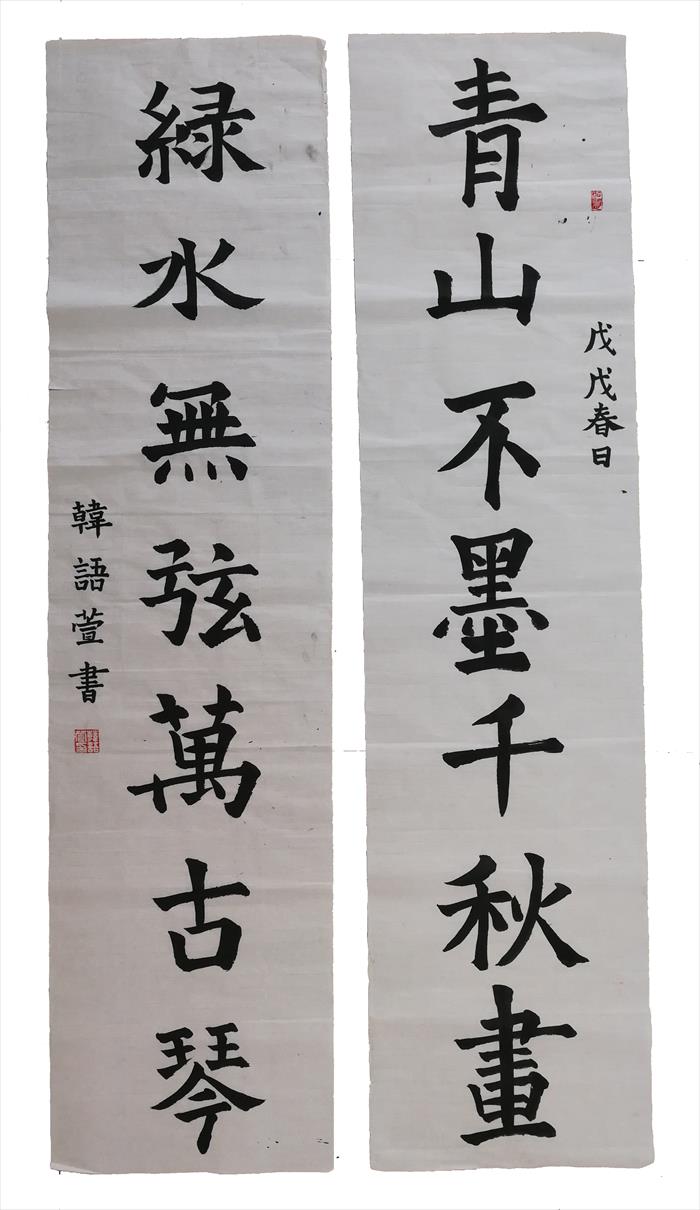 青山不墨千秋畫
戊戌春日
綠水無弦萬古琴
韓語萱書